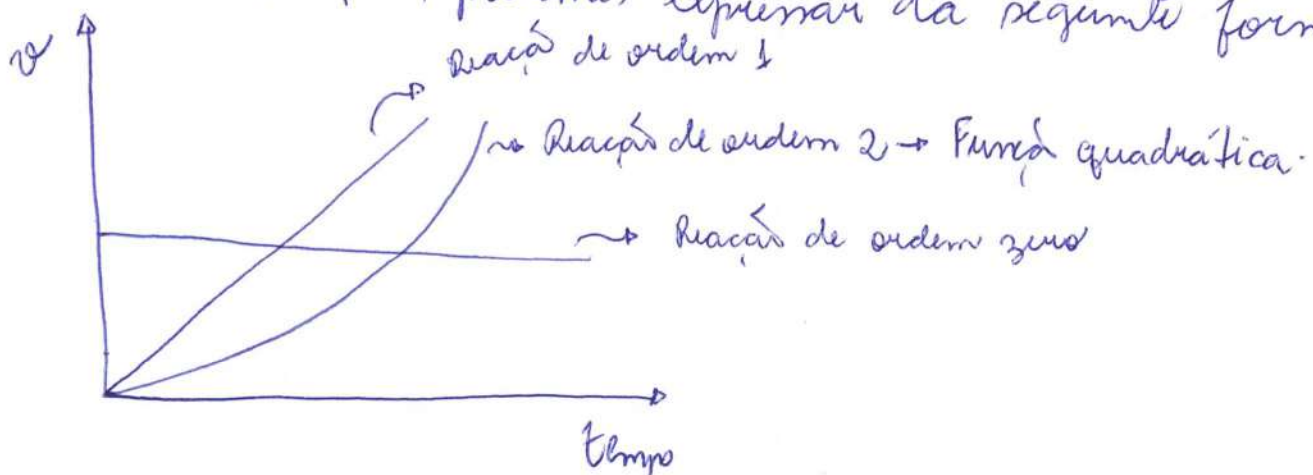 expressar da seguinte form
Reação de ordem 1
v
Reação de ordem 2 → Função quadrática.
Reação de ordem zero
tempo